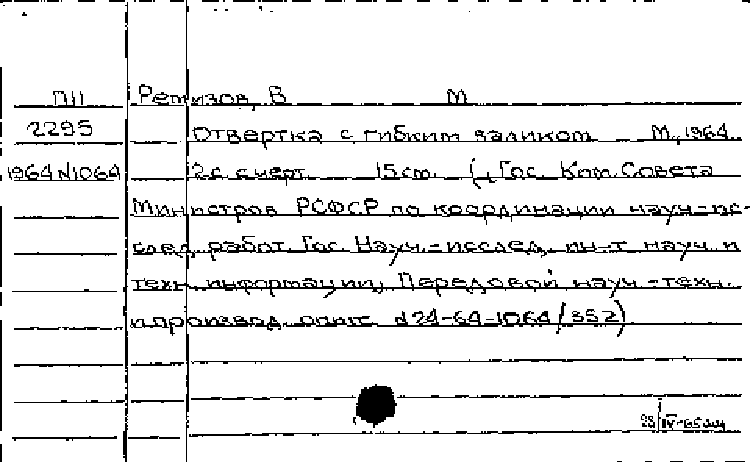 ПП Ремизов, В М
2295 Отвертка с гибким валиком М., 1964.
1964 N1064 2с. с черт. 15см. (Гос. Ком. Совета
Министров РСФСР по координации науч-ис-
след. работ. Гос. Науч.-исслед. ин-т науч и
техн. информации) Передовой науч.-техн.
и производ. опыт. №24-64-1064/352)
23/IV-65